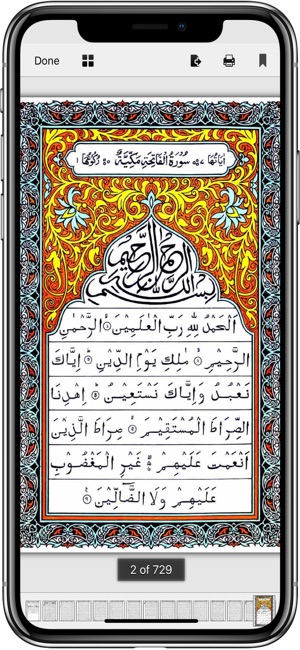 Done
اٰيَاتُهَا ٧ سُوْرَةُ الْفَاتِحَةِ مَكِّيَّةٌ ٥ رُكُوْعُهَا ١
بِسْمِ اللّٰهِ الرَّحْمٰنِ الرَّحِيْمِ
اَلْحَمْدُ لِلّٰهِ رَبِّ الْعٰلَمِيْنَ ۙ الرَّحْمٰنِ
الرَّحِيْمِ ۙ مٰلِكِ يَوْمِ الدِّيْنِ ؕ اِيَّاكَ
نَعْبُدُ وَاِيَّاكَ نَسْتَعِيْنُ ؕ اِهْدِنَا
الصِّرَاطَ الْمُسْتَقِيْمَ ۙ صِرَاطَ الَّذِيْنَ
اَنْعَمْتَ عَلَيْهِمْ ۙ غَيْرِ الْمَغْضُوْبِ
عَلَيْهِمْ وَلَا الضَّآلِّيْنَ
2 of 729